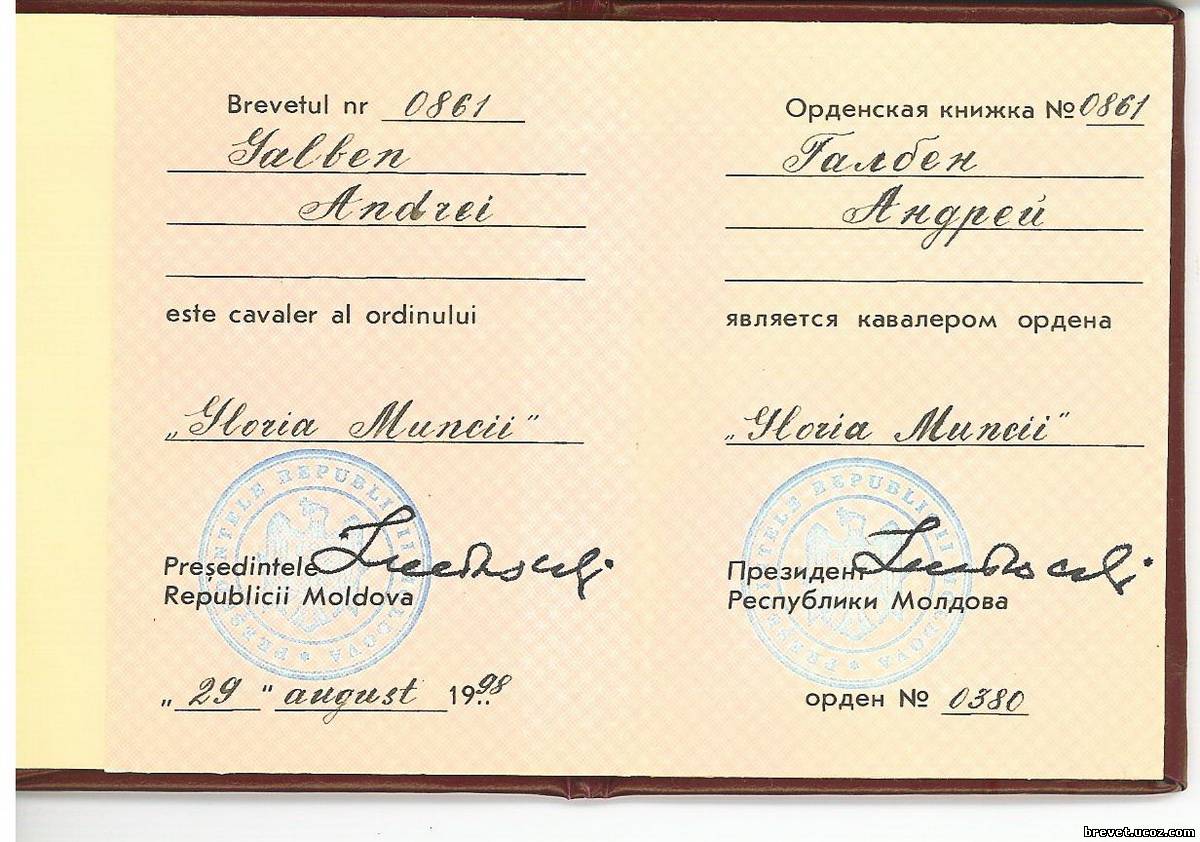 Brevetul nr 0861
Galben
Andrei
este cavaler al ordinului
„Gloria Muncii"
PREȘEDINTELE REPUBLICII MOLDOVA
Preşedintele
Republicii Moldova
„29" august 1998
Орденская книжка № 0861
Галбен
Андрей
является кавалером ордена
„Gloria Muncii"
PREȘEDINTELE REPUBLICII MOLDOVA
Президент
Республики Молдова
орден № 0380
brevet.ucoz.com